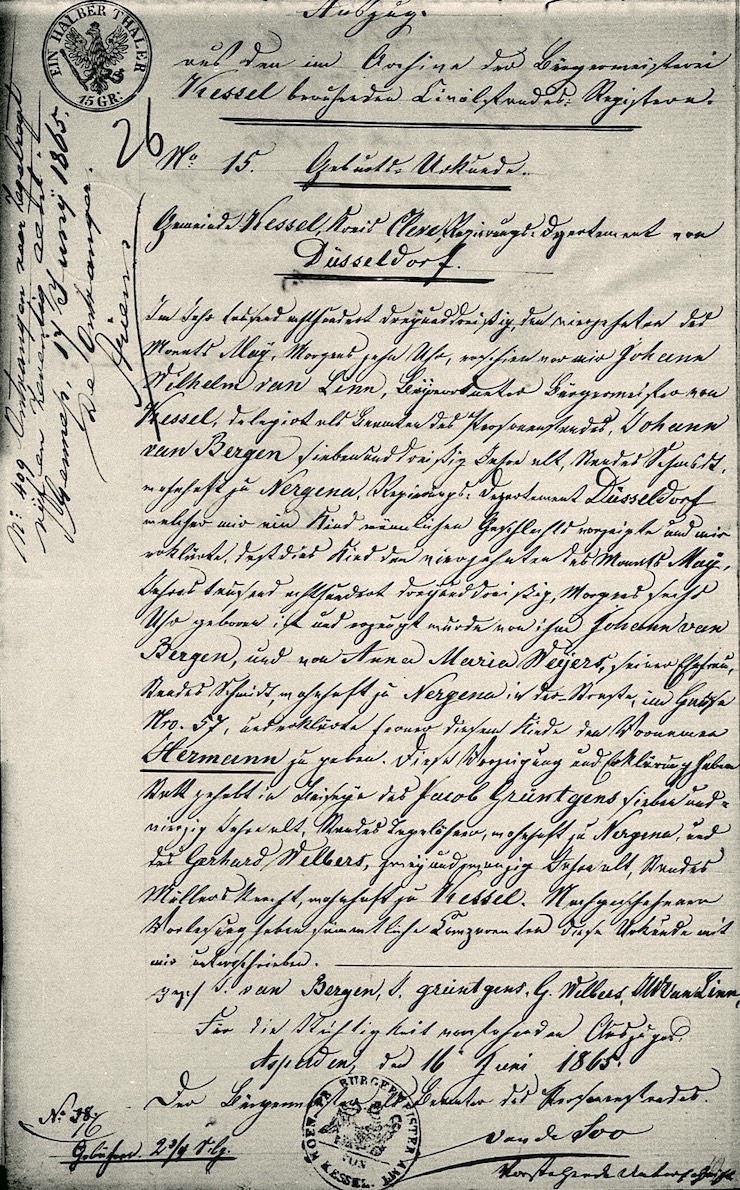 EIN HALBER THALER
15 GR:
Auszug.
aus den im Archive der Bürgermeisterei
Kessel beruhenden Civilstandes-Registern.
26
No 15. Geburts-Urkunde.
Gemeinde Kessel, Kreis Cleve, Regierungs-Departement von
Düsseldorf.
Im Jahr tausend achthundert dreyunddreißig, den vierzehnten des
Monats May, Morgens zehn Uhr, erschien vor mir Johann
Wilhelm van Linn, Beigeordneter Bürgermeister von
Kessel, delegirt als Beamten des Personenstandes, Johann
van Bergen siebenunddreißig Jahre alt, Standes Schmidt,
wohnhaft zu Nergena, Regierungs-Departement Düsseldorf
welcher mir ein Kind männlichen Geschlechts vorzeigte und mir
erklärte, daß dies Kind den vierzehnten des Monats May,
Jahres tausend achthundert dreyunddreißig, Morgens sechs
Uhr geboren ist und erzeugt wurde von ihm Johann van
Bergen, und von Anna Maria Weyers, seiner Ehefrau,
Standes Schmidt, wohnhaft zu Nergena in der Straße, im Hause
Nro. 57, und erklärte ferner diesem Kinde den Vornamen
Hermann zu geben. Diese Vorzeigung und Erklärung haben
Statt gehabt in Beiseyn des Jacob Grüntgens sieben und-
vierzig Jahre alt, Standes Tagelöhner, wohnhaft zu Nergena, und
des Gerhard Welbers, zweyundzwanzig Jahre alt, Standes
Müllersknecht, wohnhaft zu Kessel. Nachgeschehener
Vorlesung haben sämmtliche Comparenten diese Urkunde mit
mir unterschrieben.
gez: J. van Bergen, J. grüntgens, G. Welbers, JW van Linn,
Für die Richtigkeit vorstehenden Auszuges.
Asperden, den 16 Juni 1865.
Der Bürgermeister als Beamter des Personenstandes.
van de Loo
Vorstehende Unterschrift
No 38
Gebühren 2 3/4 Slg.
BURGERMEISTER AMT
VON
KESSEL
No 409 Ontvangen voor
zeventig cent.
Gennep, 17 Juny 1865.
De Ontvanger.